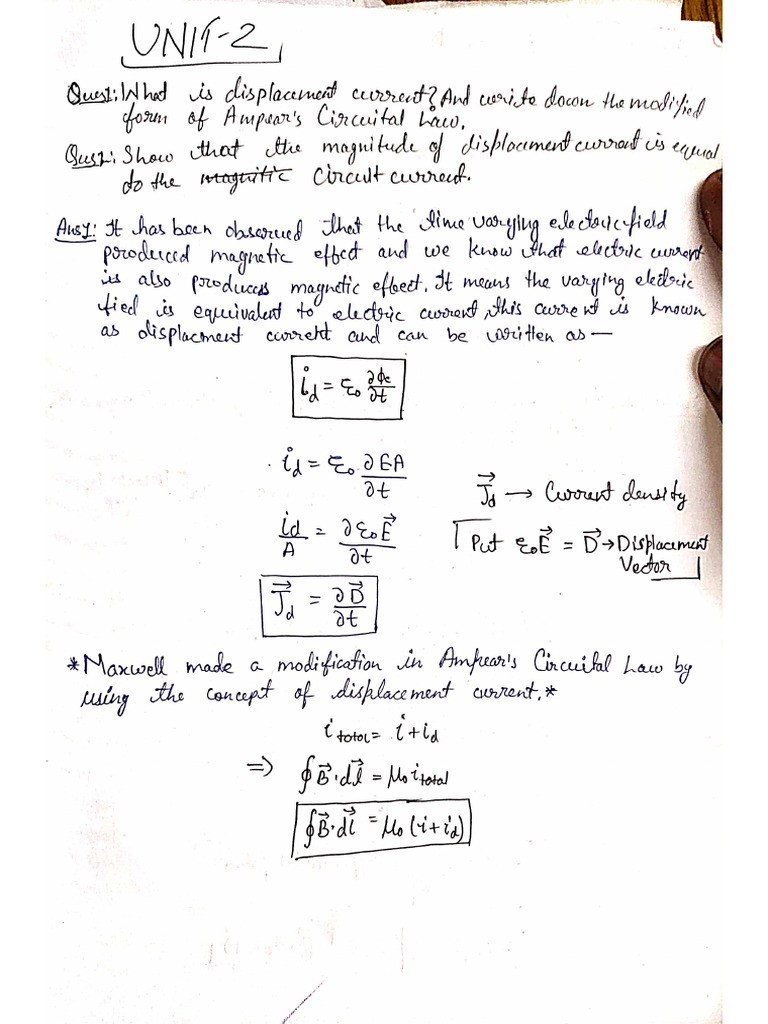 UNIT-2
Ques1: What is displacement current? And write down the modified
form of Ampear's Circuital Law.
Ques2: Show that the magnitude of displacement current is equal
to the magnitic circuit current.
Ans1: It has been observed that the time varying electric field
produced magnetic effect and we know that electric current
is also produces magnetic effect. It means the varying electric
fied is equivalent to electric current, this current is known
as displacment current and can be written as —
i_d = ε₀ ∂ϕₑ/∂t
i_d = ε₀ ∂EA/∂t
J⃗_d → Current density
i_d/A = ∂ε₀E⃗/∂t
Put ε₀E⃗ = D⃗ → Displacement
Vector
J⃗_d = ∂D⃗/∂t
*Maxwell made a modification in Ampear's Circuital Law by
using the concept of displacement current.*
i_total = i + i_d
⇒ ∮B⃗·dl⃗ = μ₀ i_total
∮B⃗·dl⃗ = μ₀ (i + i_d)